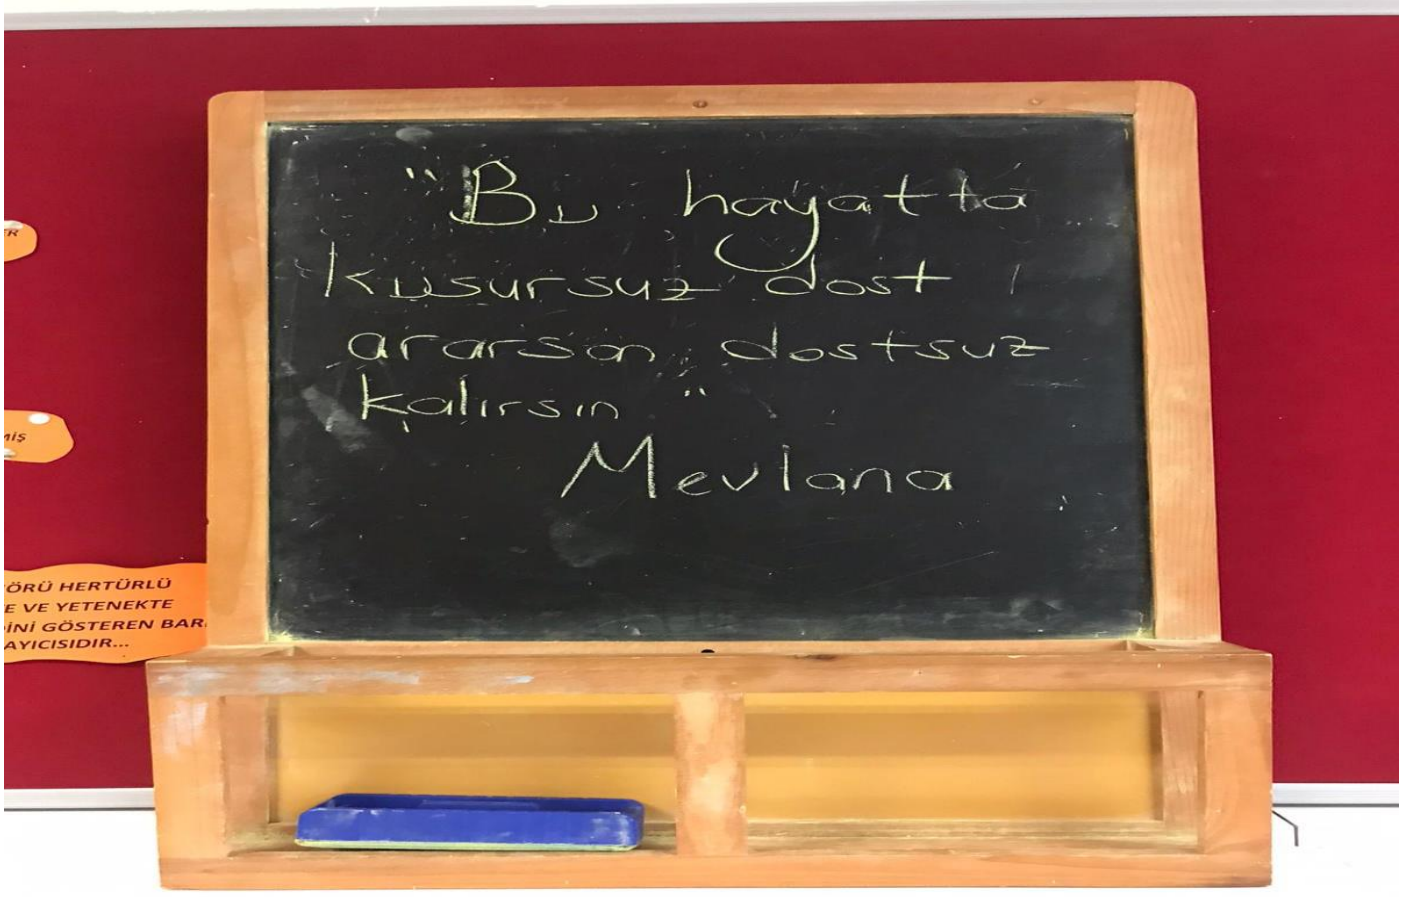 "Bu hayatta
kusursuz dost
ararsan dostsuz
kalırsın"
Mevlana
ER
MİŞ
ÖRÜ HERTÜRLÜ
E VE YETENEKTE
DİNİ GÖSTEREN BARI
AYICISIDIR...